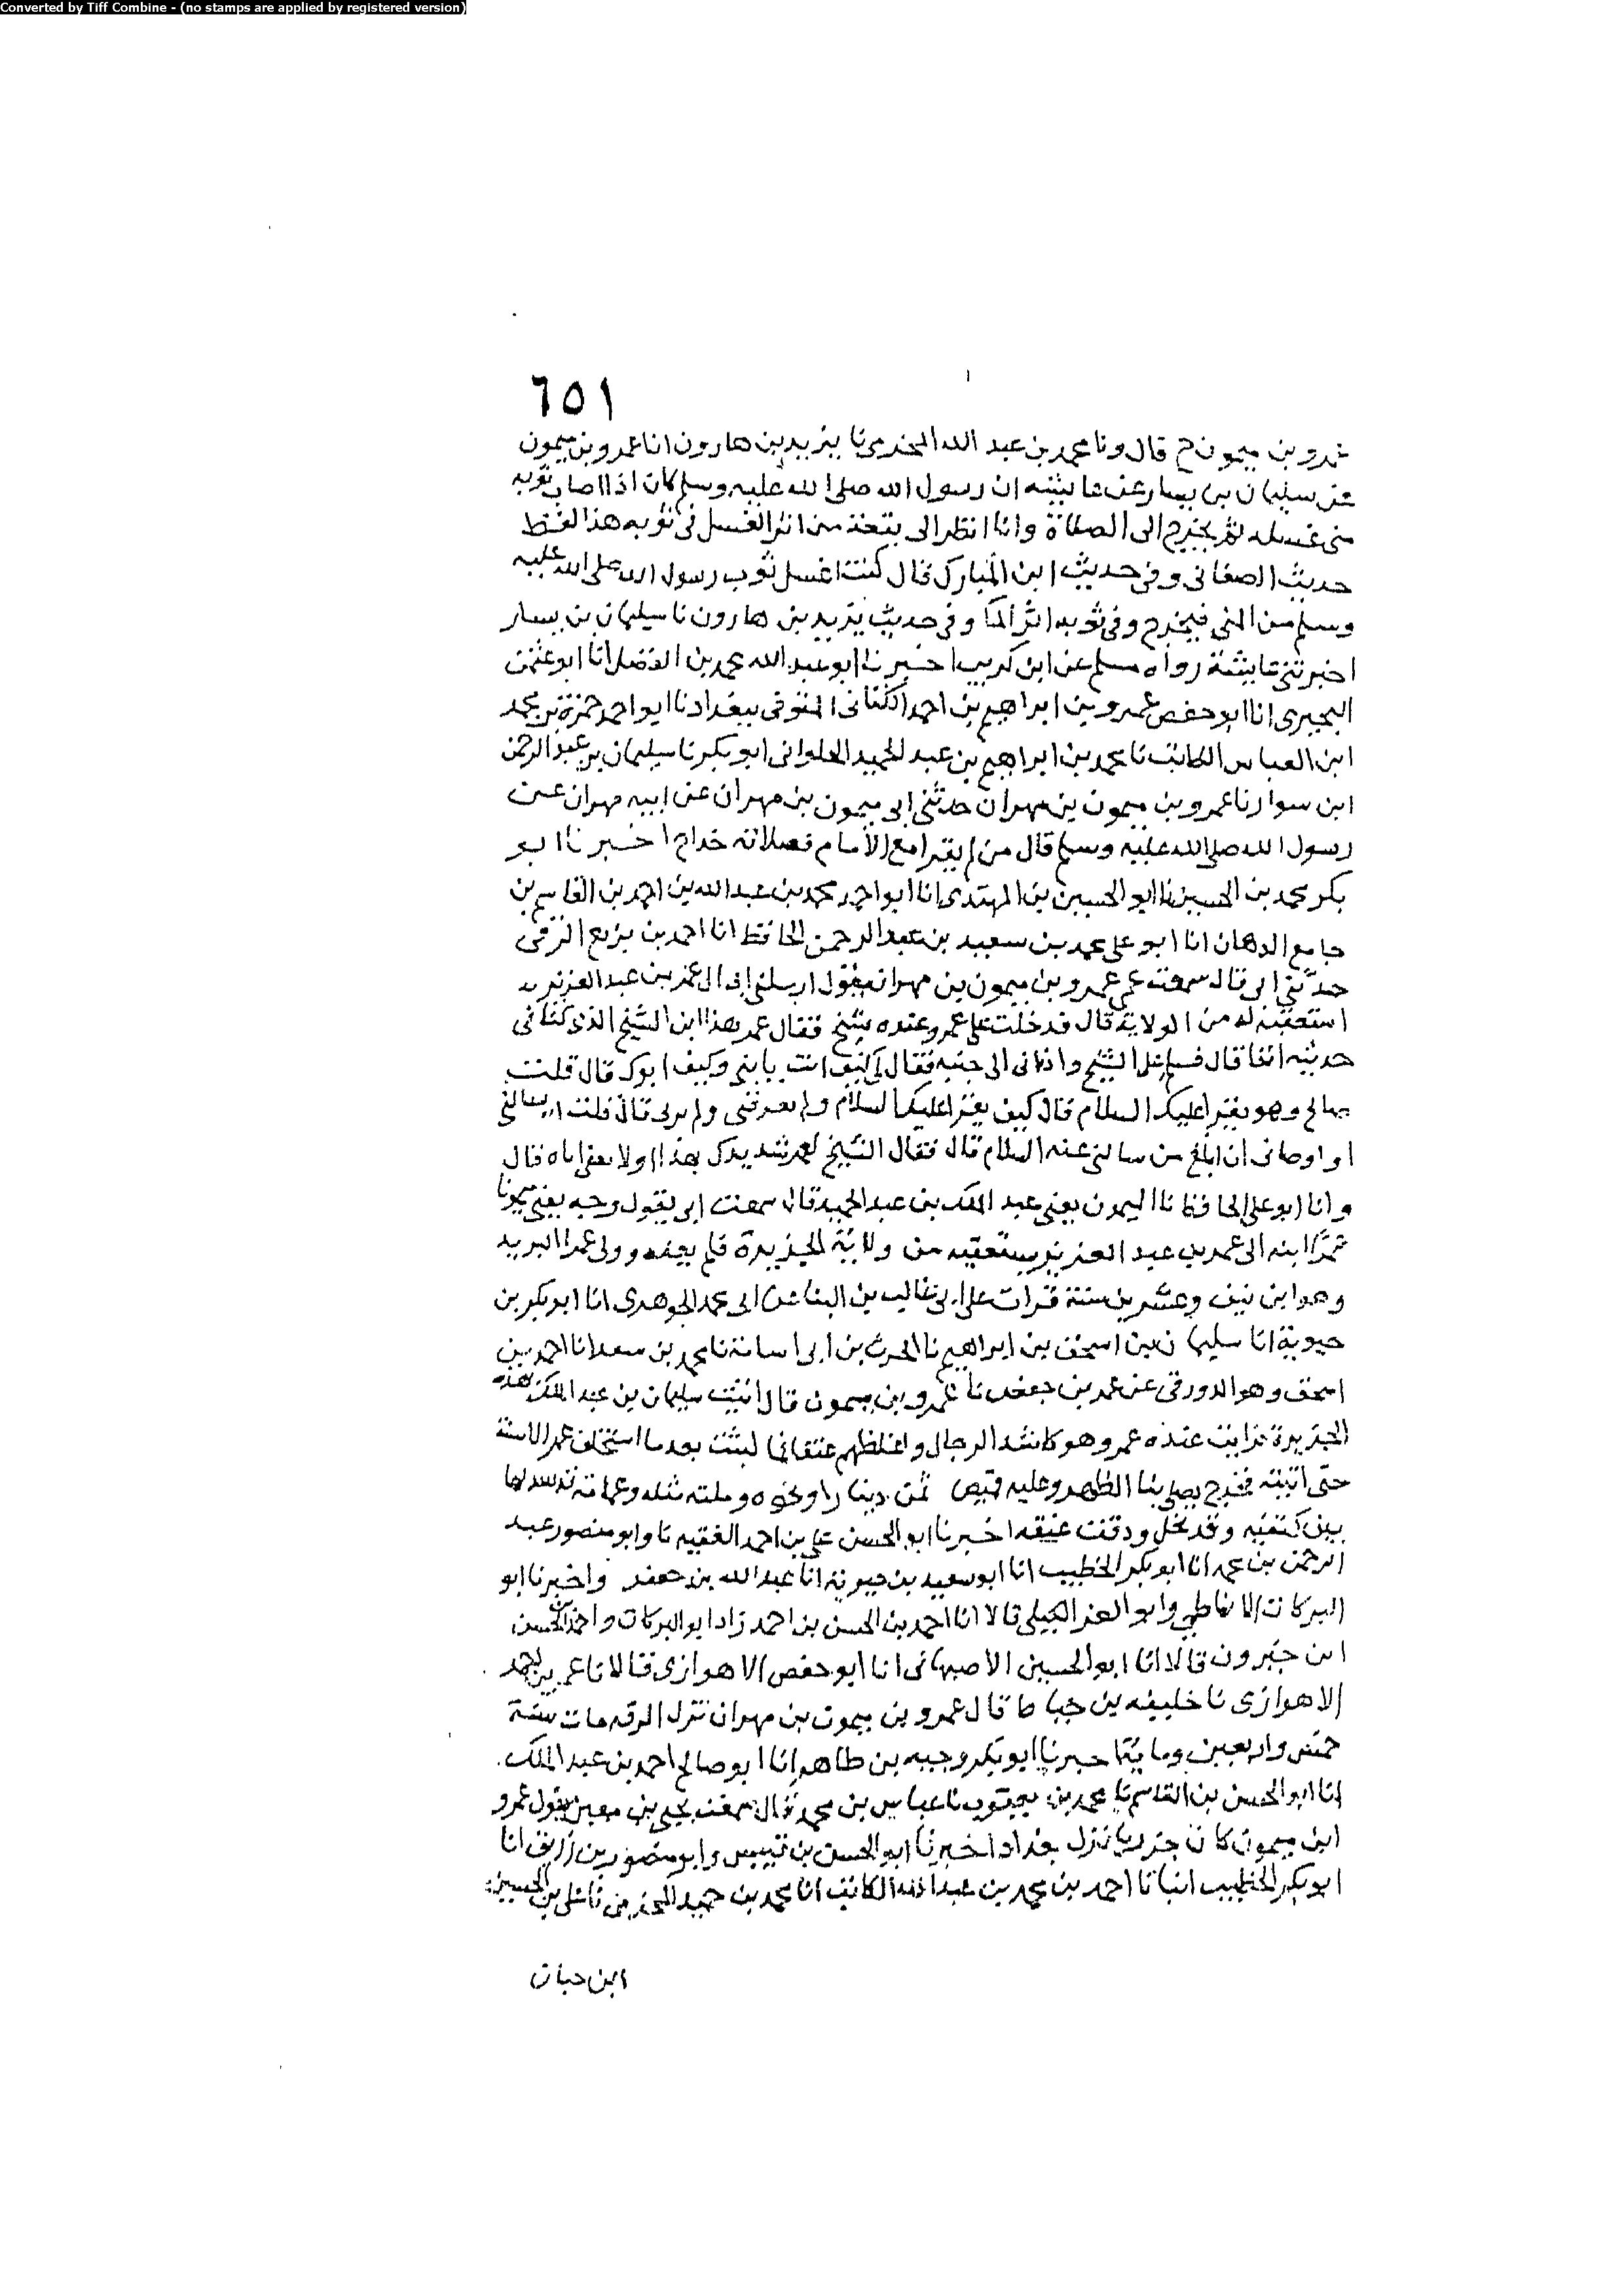 Converted by Tiff Combine - (no stamps are applied by registered version)
٦٥١
عمرو بن ميمون ح قال ونا محمد بن عبد الله المخرمى نا يزيد بن هارون انا عمرو بن ميمون
عن سليمان بن يسار عن عايشه ان رسول الله صلى الله عليه وسلم كان اذا اصاب ثوبه
منى غسله ثم يخرج الى الصلاة وانا انظر الى بقعة من اثر الغسل فى ثوبه هذا لفظ
حديث الصغانى وفى حديث ابن المبارك قال كنت اغسل ثوب رسول الله صلى الله عليه
وسلم من المنى فيخرج وفى ثوبه اثر الما وفى حديث يزيد بن هارون نا سليمان بن يسار
اخبرتنى عايشة رواه مسلم عن ابن كريب اخبرنا ابو عبد الله محمد بن الفضل انا ابو عثمن
البحيرى انا ابو حفص عمرو بن ابراهيم بن احمد الكتانى المتوفى ببغداد نا ابو احمد حمزة بن محمد
ابن العباس الكاتب نا محمد بن ابراهيم بن عبد الحميد الحلوانى ابو بكر نا سليمان بن عبد الرحمن
ابن سوار نا عمرو بن ميمون بن مهران حدثنى ابى ميمون بن مهران عن ابيه مهران عن
رسول الله صلى الله عليه وسلم قال من لم يقرا مع الامام فصلاته خداج اخبرنا ابو
بكر محمد بن الحسين نا ابو الحسين بن المهتدى انا ابو احمد محمد بن عبد الله بن احمد بن القاسم بن
جامع الدهان انا ابو على محمد بن سعيد بن عبد الرحمن الحافظ انا احمد بن بزيع الرقى
حدثنى ابى قال سمعت عمى عمرو بن ميمون بن مهران يقول ارسلنى ابى الى عمر بن عبد العزيز
استعفيه له من الولاية قال فدخلت على عمر وعنده شيخ فقال عمر هذا ابن الشيخ الذى كنا فى
حديثه انفا قال فسلم على الشيخ وادنانى الى جنبه فقال كيف انت يا بنى وكيف ابوك قال قلت
صالح وهو يقرا عليك السلام قال كيف يقرا عليك السلام ولم يعرفنى ولم يرنى قال قلت
او اوصانى ان ابلغ من سالنى عنه السلام قال فقال الشيخ لعمر شد يدك بهذا ولا تعفى اباه قال
وانا ابو على الحافظ نا الميمون يعنى عبد الملك بن عبد الحميد قال سمعت ابى يقول وجه يعنى ميمونا
عمرا ابنه الى عمر بن عبد العزيز يستعفيه من ولاية الجزيرة فلم يعفه وولى عمرا البريد
وهو ابن نيف وعشرين سنة قرات على ابى غالب بن البنا عن ابى محمد الجوهرى انا ابو بكر بن
حيوية انا سليمان بن اسحق بن ابراهيم نا الحرث بن ابى اسامة نا محمد بن سعد انا احمد بن
اسحق وهو الدورقى عن محمد بن جعفر نا عمرو بن ميمون قال اتيت سليمان بن عبد الملك بهذه
الجزيرة فرايت عنده عمر وهو كاشد الرجال واغلظهم عنقا فما لبثت بعدما استخلف عمر الا سنة
حتى اتيته فخرج يصلى بنا الظهر وعليه قميص ثمن دينار او نحوه وملته مثله وعمامة قد سدلها
بين كتفيه وقد نحل ودقت عنقه اخبرنا ابو الحسن على بن احمد الفقيه نا وابو منصور عبد
الرحمن بن محمد انا ابو بكر الخطيب انا ابو سعيد بن حيوية انا عبد الله بن جعفر واخبرنا ابو
البركات الانماطى وابو العز الكيلى قالا انا احمد بن الحسن بن احمد زاد ابو البركات واحمد بن الحسن
ابن خيرون قالا انا ابو الحسين الاصبهانى انا ابو حفص الاهوازى قالا نا عمر بن احمد
الاهوازى نا خليفه بن خياط قال عمرو بن ميمون بن مهران نزل الرقه مات سنة
خمس واربعين ومايه اخبرنا ابو بكر وجيه بن طاهر انا ابو صالح احمد بن عبد الملك
انا ابو الحسن بن القاسم نا محمد بن يعقوب نا عباس بن محمد قال سمعت يحيى بن معين يقول عمرو
ابن ميمون كان جزريا نزل بغداد اخبرنا ابو الحسن بن قبيس وابو منصور بن زريق انا
ابو بكر الخطيب انبانا احمد بن محمد بن عبد الله الكاتب انا محمد بن حميد المخرمى نا على بن الحسين
ابن حبان